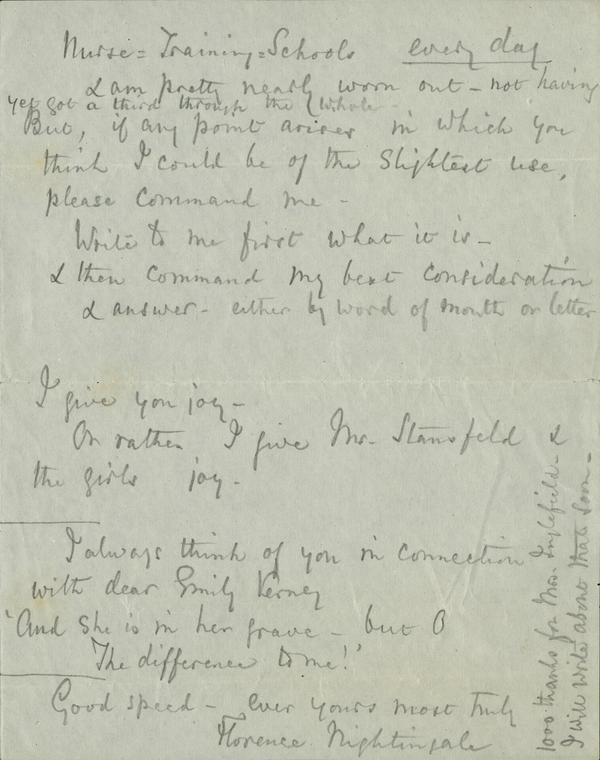 Nurse=Training=Schools every day
& am pretty nearly worn out - not having
yet got a third through the whole -
But, if any point arises in which you
think I could be of the slightest use,
please command me -
Write to me first what it is -
& then command my best consideration
& answer - either by word of mouth or letter
I give you joy -
Or rather I give Mr. Stansfeld &
the girls joy -
I always think of you in connection
with dear Emily Verney
'And she is in her grave - but O
The difference to me!'
Good speed - ever yours most truly
Florence Nightingale
1000 thanks for Mrs. Inglefield - &
I will write about that soon -